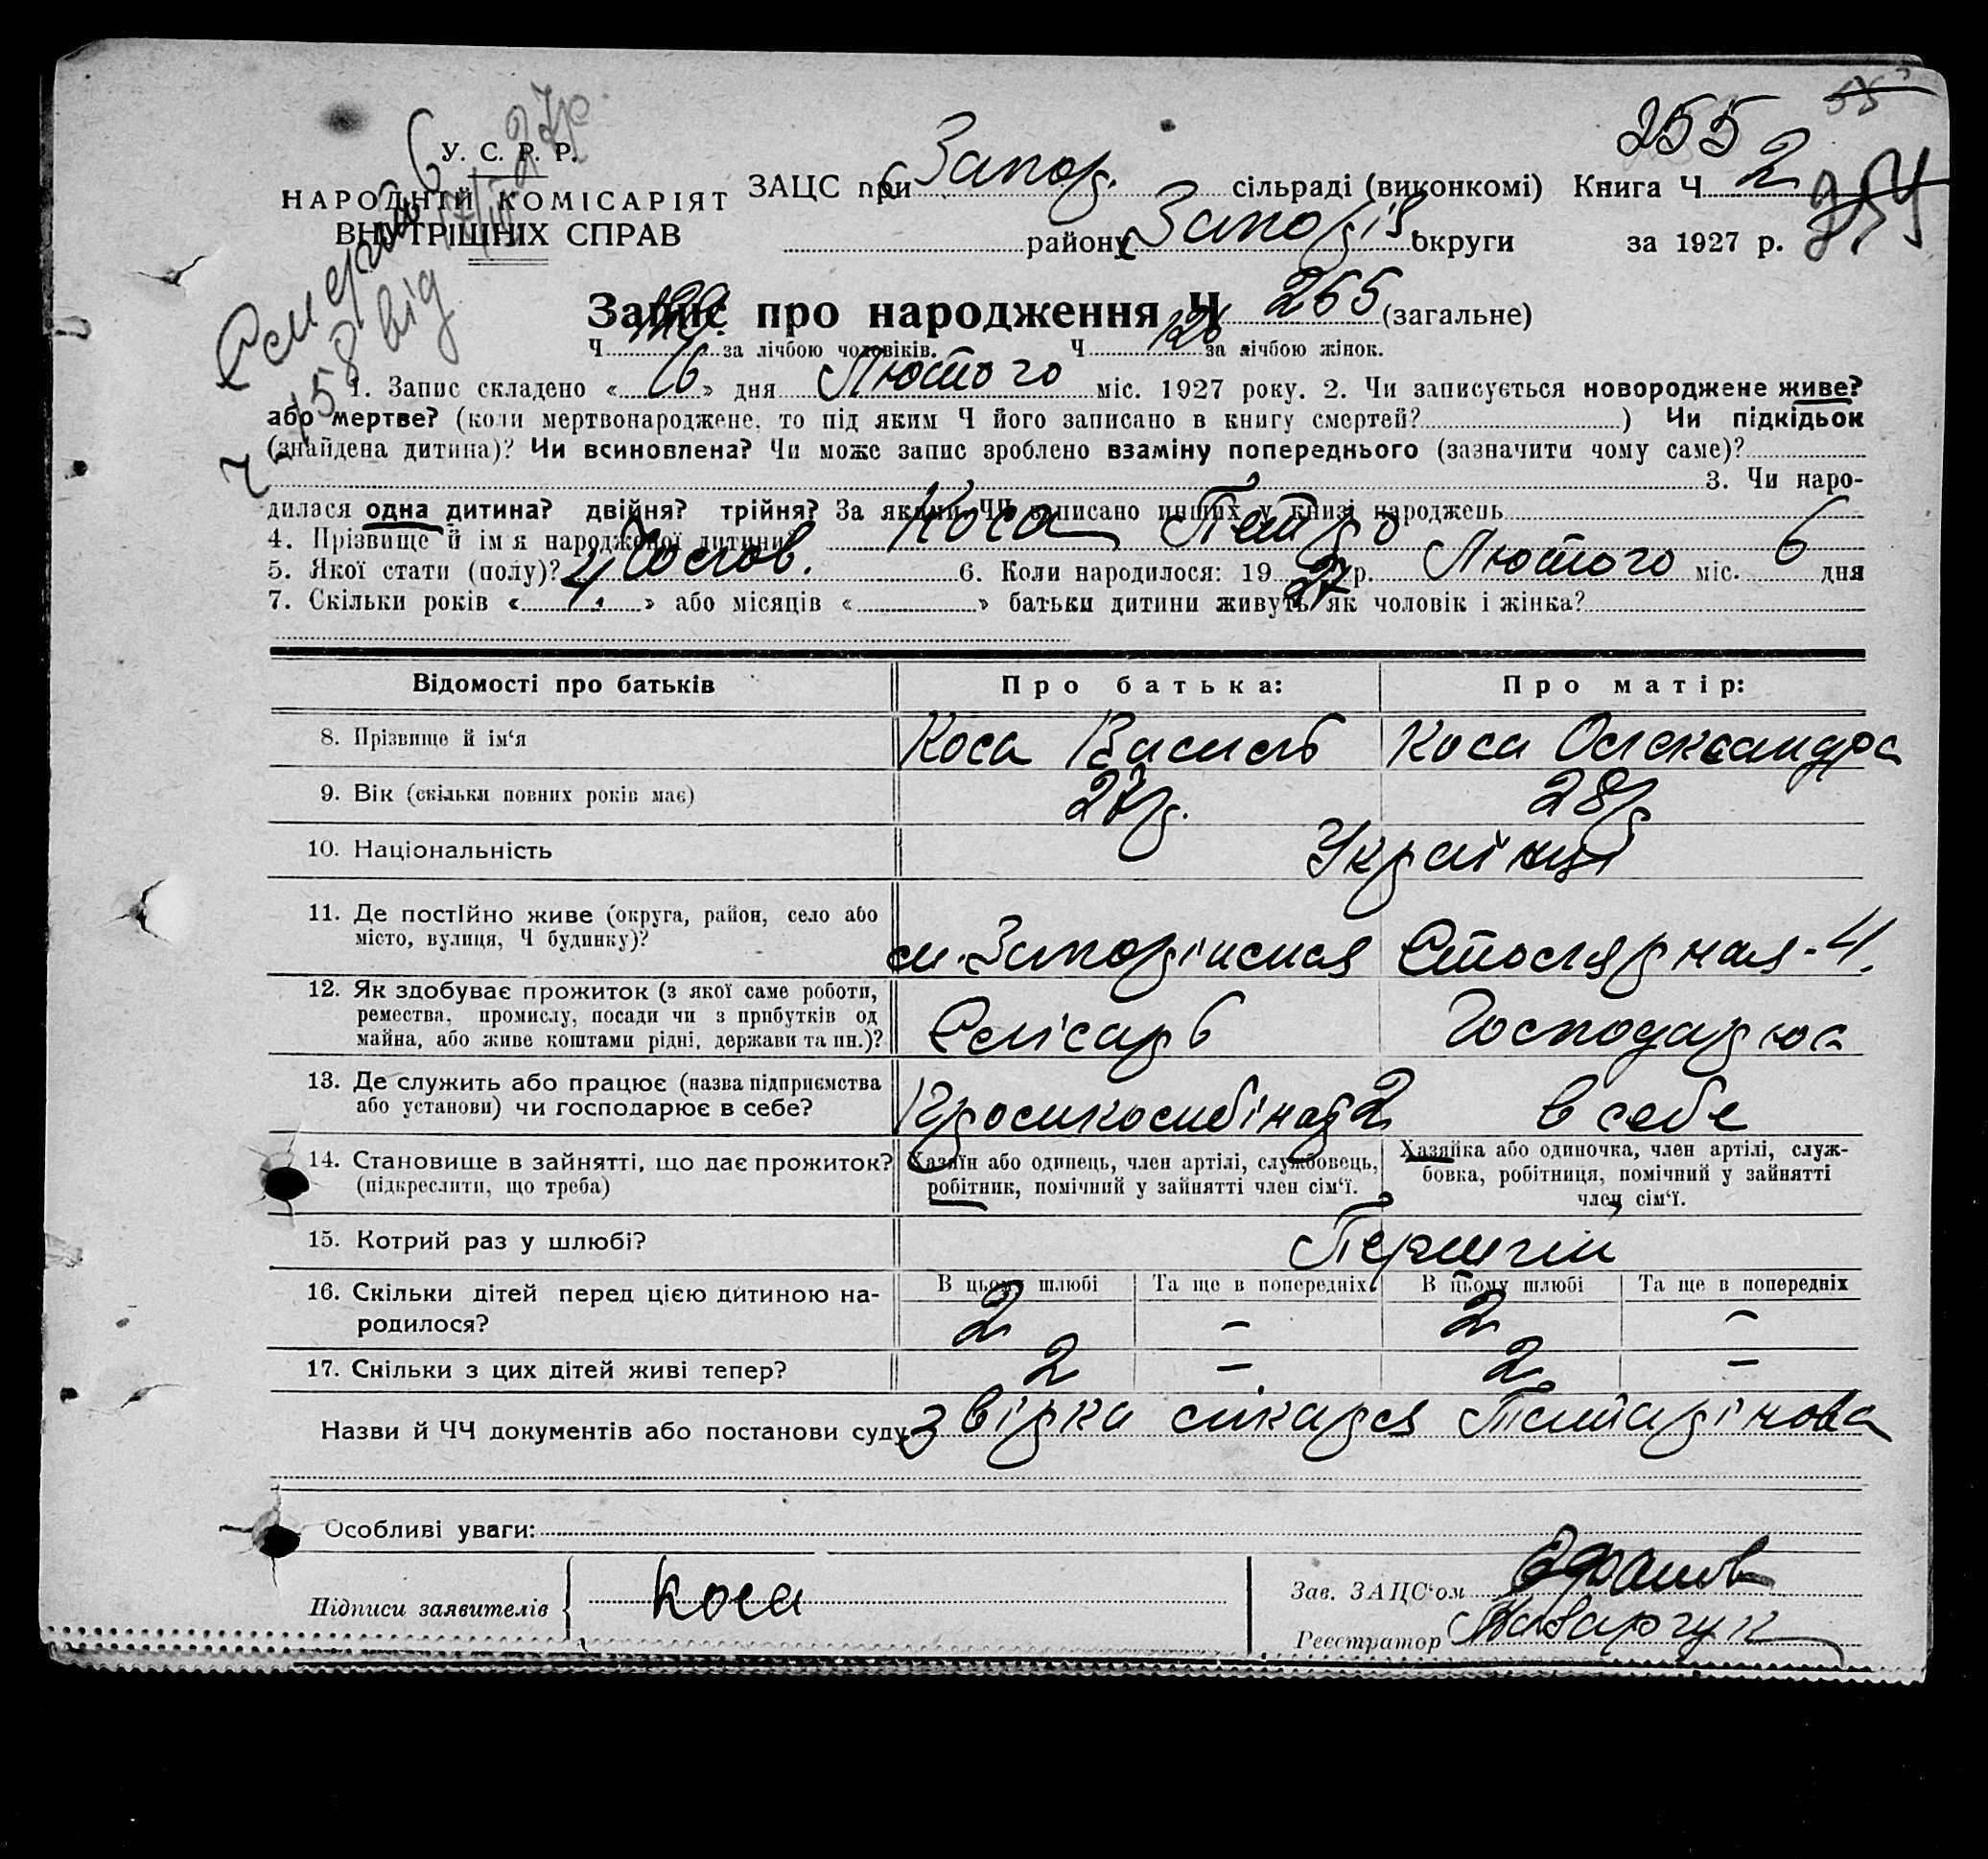 255
55
У. С. Р. Р.
НАРОДНІЙ КОМІСАРІЯТ
ВНУТРІШНІХ СПРАВ
Смерть
Ч 158 від
ЗАЦС при Запор. сільраді (виконкомі) Книга Ч 2
району Запоріз. округи за 1927 р. 254
Запис про народження Ч 255 (загальне)
Ч за лічбою чоловіків. Ч 126 за лічбою жінок.
1. Запис складено « 16 » дня Лютого міс. 1927 року. 2. Чи записується новороджене живе?
або мертве? (коли мертвонароджене, то під яким Ч його записано в книгу смертей? ) Чи підкідьок
(знайдена дитина)? Чи всиновлена? Чи може запис зроблено взаміну попереднього (зазначити чому саме)?
3. Чи наро-
дилася одна дитина? двійня? трійня? За якими ЧЧ записано инших у книзі народжень
4. Прізвище й ім я народженої дитини Коса Петро
5. Якої стати (полу)? Чолов. 6. Коли народилося: 19 27 р. Лютого міс. 6 дня
7. Скільки років « 4 » або місяців « » батьки дитини живуть як чоловік і жінка?
Відомості про батьків Про батька: Про матір:
8. Прізвище й ім‘я Коса Василь Коса Олександра
9. Вік (скільки повних років має) 27 р. 28 р.
10. Національність Українці
11. Де постійно живе (округа, район, село або
місто, вулиця, Ч будинку)? м. Запоріжжя Столярная - 4.
12. Як здобуває прожиток (з якої саме роботи,
ремества, промислу, посади чи з прибутків од
майна, або живе коштами рідні, держави та ин.)? Слісарь Господарює
13. Де служить або працює (назва підприємства
або установи) чи господарює в себе? Промкомбінат 2 в себе
14. Становище в зайнятті, що дає прожиток?
(підкреслити, що треба)
Хазяїн або одинець, член артілі, службовець,
робітник, помічний у зайнятті член сім‘ї.
Хазяйка або одиночка, член артілі, служ-
бовка, робітниця, помічний у зайнятті
член сім‘ї.
15. Котрий раз у шлюбі? Перший
В цьому шлюбі Та ще в попередніх В цьому шлюбі Та ще в попередніх
16. Скільки дітей перед цією дитиною на-
родилося? 2 – 2 –
17. Скільки з цих дітей живі тепер? 2 – 2 –
Назви й ЧЧ документів або постанови суду Звірка лікаря
Особливі уваги:
Підписи заявителів Коса
Зав. ЗАЦС‘ом
Реєстратор